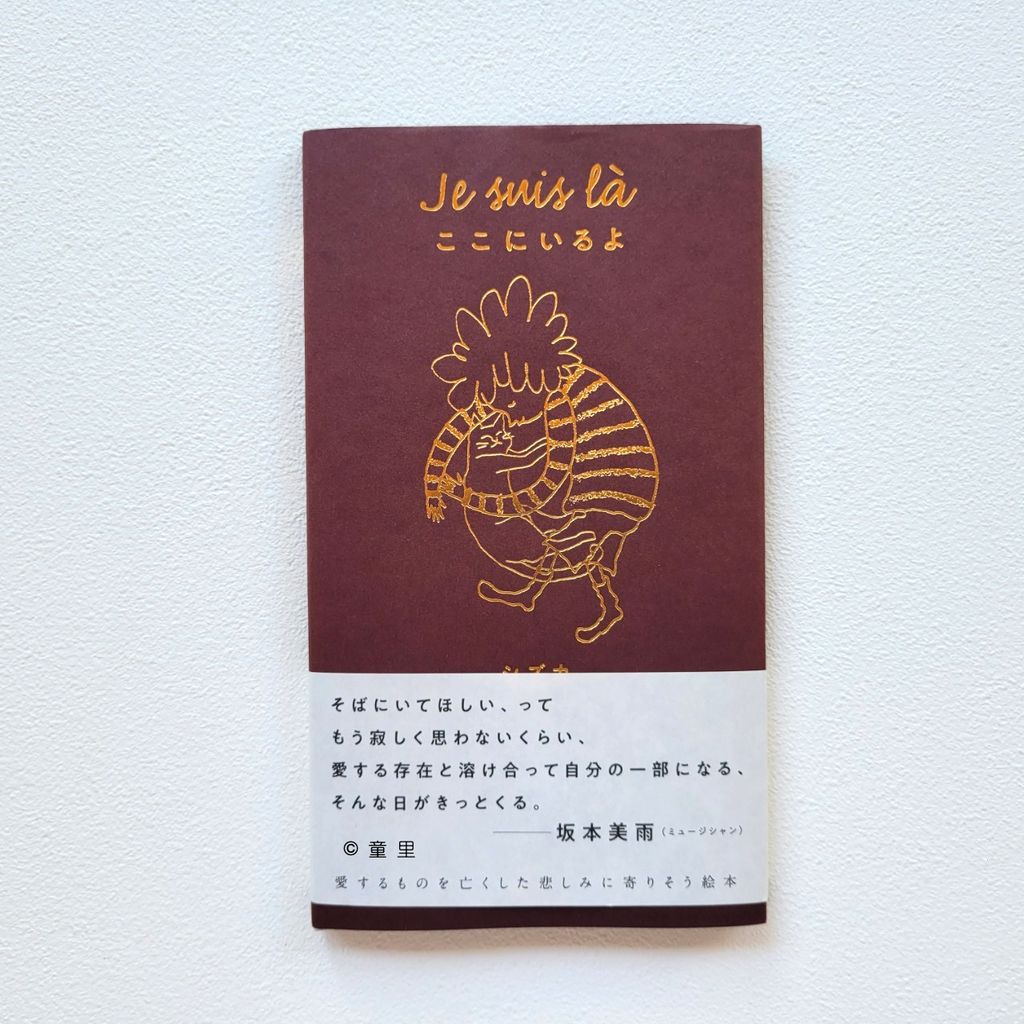 Je suis là
ここにいるよ
シズカ
そばにいてほしい、って
もう寂しく思わないくらい、
愛する存在と溶け合って自分の一部になる、
そんな日がきっとくる。
坂本美雨（ミュージシャン）
© 童里
愛するものを亡くした悲しみに寄りそう絵本